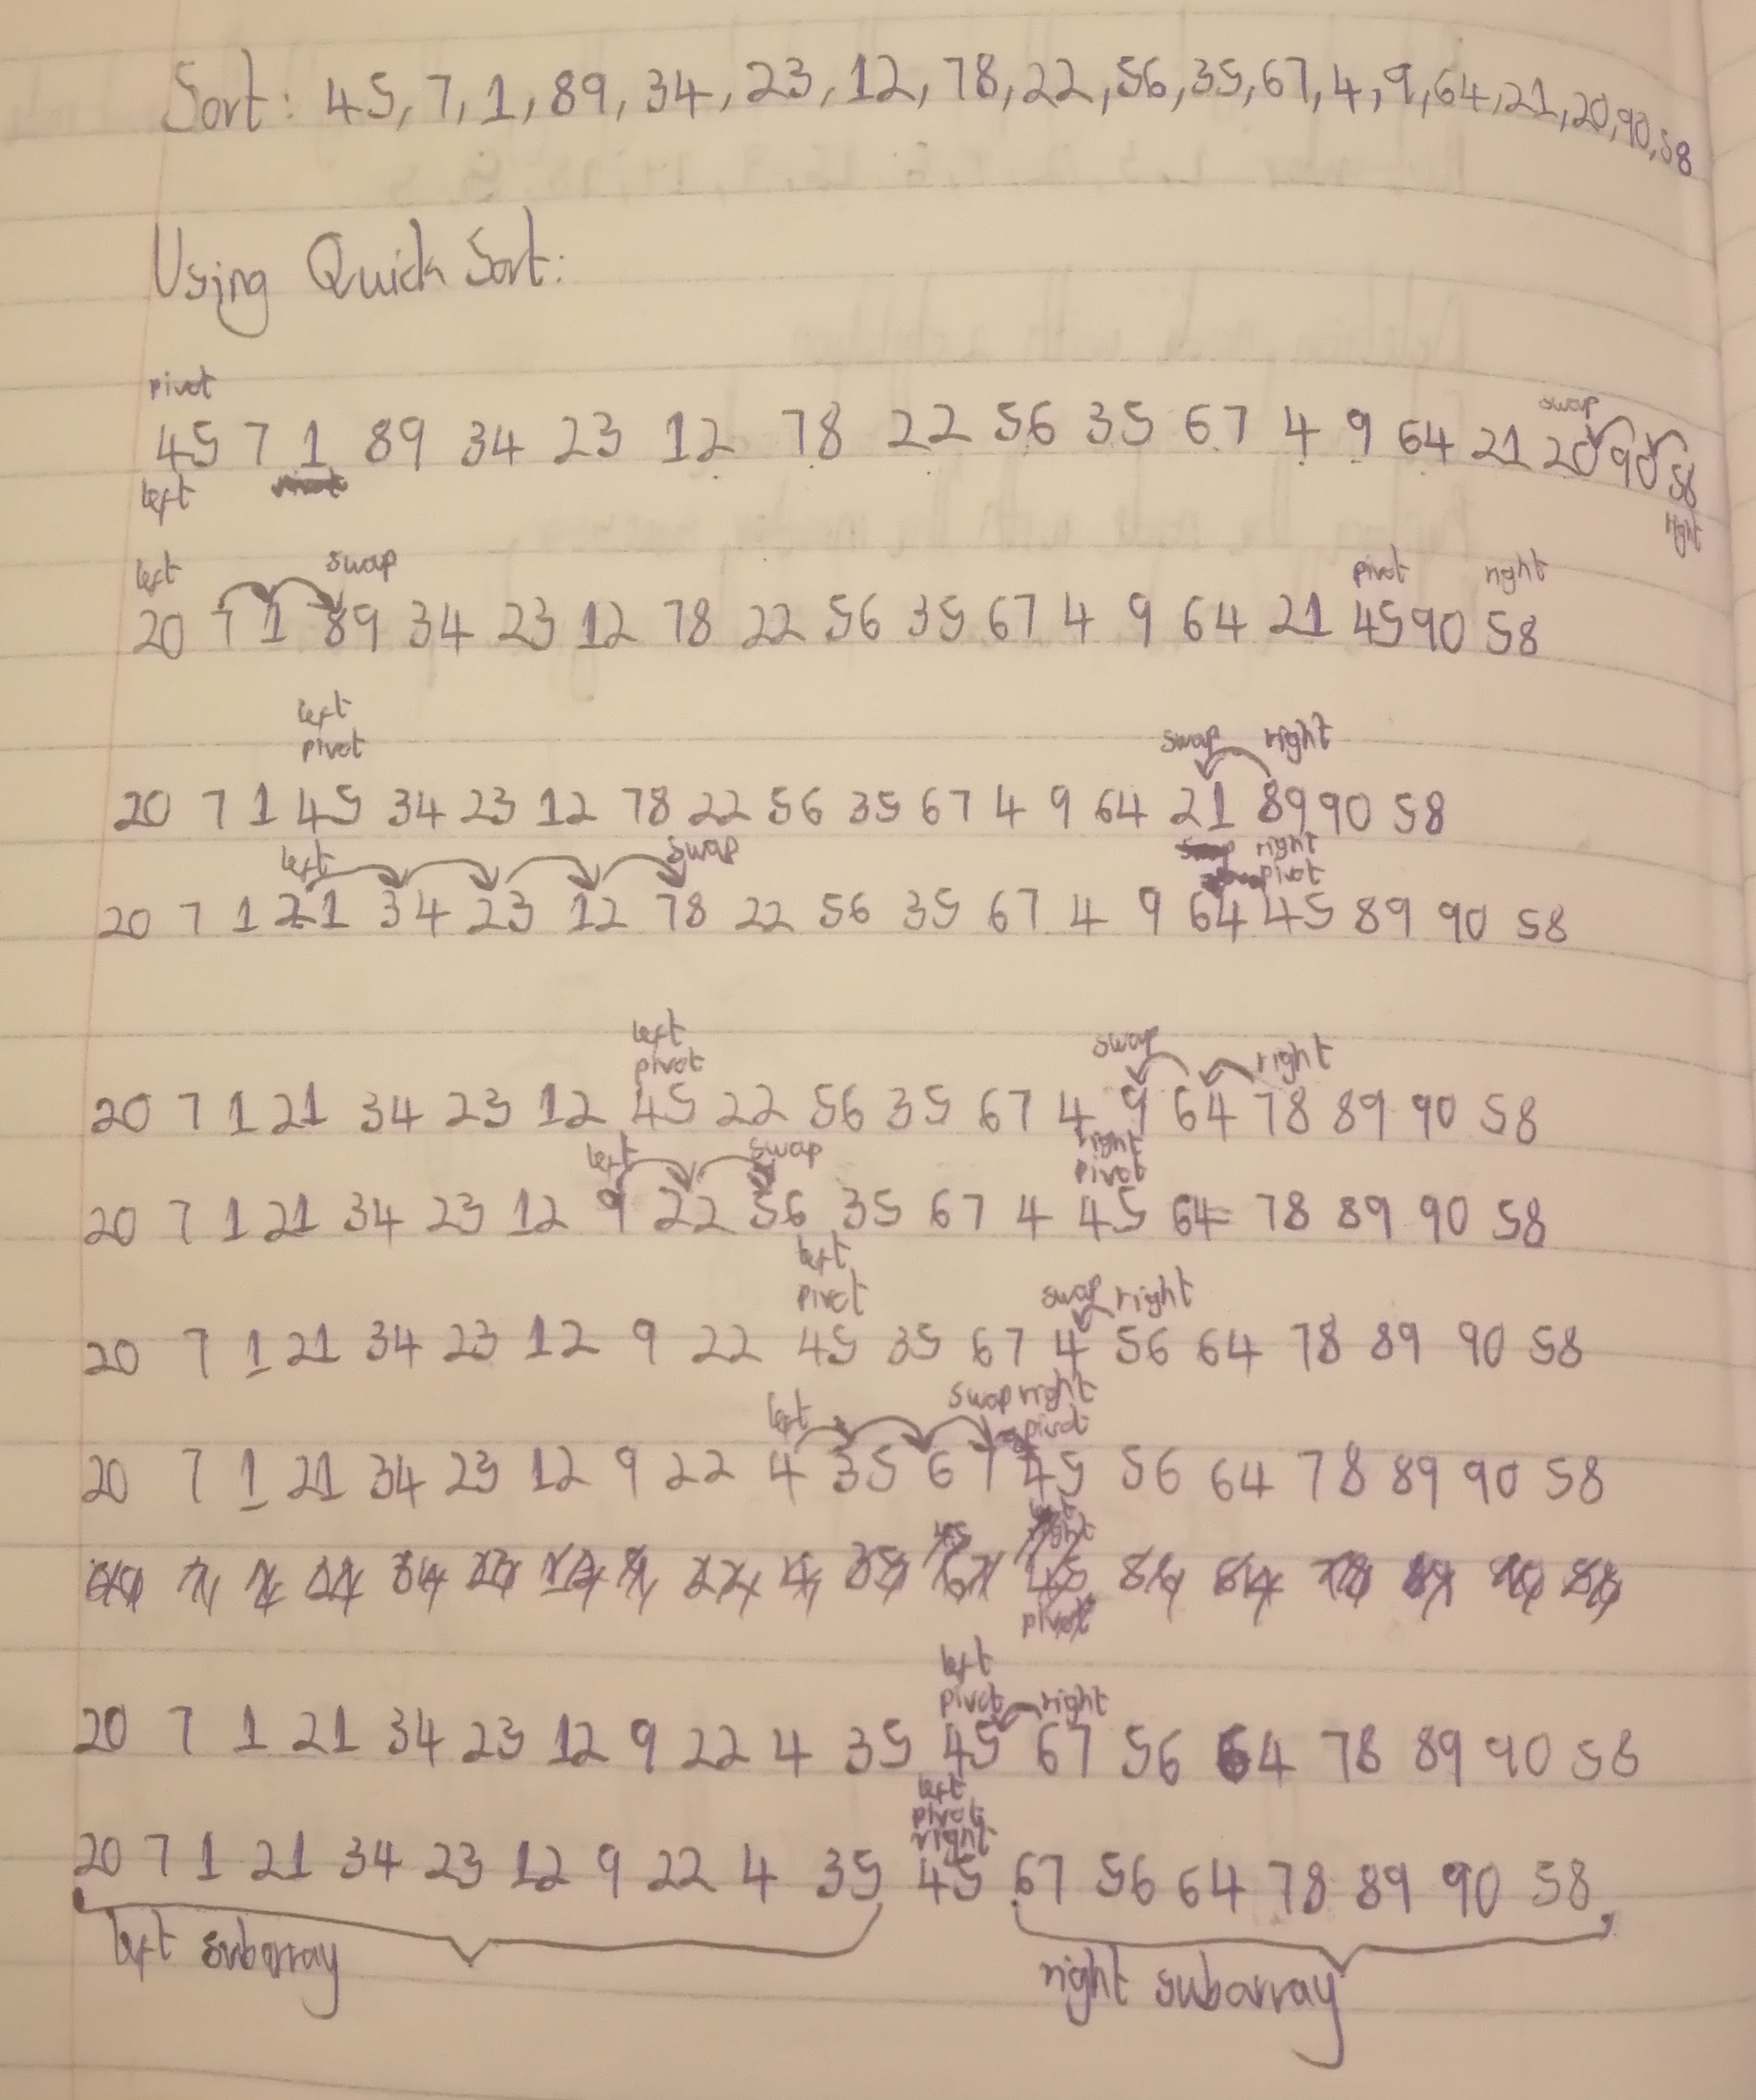 Sort: 45, 7, 1, 89, 34, 23, 12, 78, 22, 56, 35, 67, 4, 9, 64, 21, 20, 90, 58
Using Quick Sort:
pivot swap
45 7 1 89 34 23 12 78 22 56 35 67 4 9 64 21 20 90 58
left right
left swap pivot right
20 7 1 89 34 23 12 78 22 56 35 67 4 9 64 21 45 90 58
left
pivot swap right
20 7 1 45 34 23 12 78 22 56 35 67 4 9 64 21 89 90 58
left swap right
pivot
20 7 1 21 34 23 12 78 22 56 35 67 4 9 64 45 89 90 58
left swap
pivot right
20 7 1 21 34 23 12 45 22 56 35 67 4 9 64 78 89 90 58
left swap right
pivot
20 7 1 21 34 23 12 9 22 56 35 67 4 45 64 78 89 90 58
left
pivot swap right
20 7 1 21 34 23 12 9 22 45 35 67 4 56 64 78 89 90 58
left swap right
pivot
20 7 1 21 34 23 12 9 22 4 35 67 45 56 64 78 89 90 58
left
pivot right
20 7 1 21 34 23 12 9 22 4 35 45 67 56 64 78 89 90 58
left
pivot
right
20 7 1 21 34 23 12 9 22 4 35 45 67 56 64 78 89 90 58
left subarray right subarray